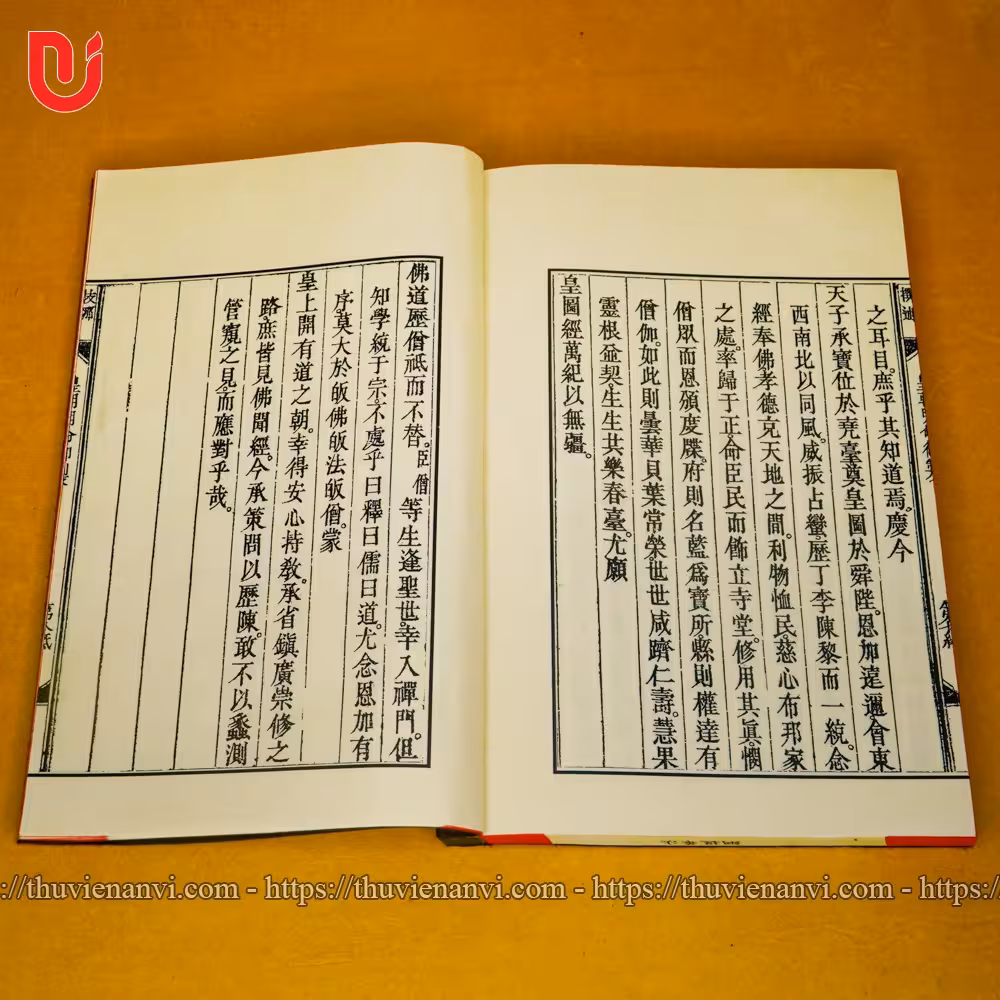 之耳目。庶乎其知道焉。慶今
天子承寶位於堯臺奠皇圖於舜陛。恩加遠邇。會東
西南北以同風。威振占蠻。歷丁李陳黎而一統。念
經奉佛孝德克天地之間。利物恤民。慈心布邦家
之處。率歸于正。命臣民而飾立寺堂。修用其眞。憫
僧眾而恩頒度牒。府則名藍爲寶所。縣則權達有
僧伽。如此則曇華貝葉常榮。世世咸躋仁壽。慧果
靈根益契。生生共樂春臺。尤願
皇圖經萬紀以無疆。
佛道歷僧祇而不替。臣僧等生逢聖世。幸入禪門。但
知學統于宗。不處乎曰釋曰儒曰道。尤念恩加有
序。莫大於皈佛皈法皈僧。蒙
皇上開有道之朝。幸得安心持教。承省鎮廣崇修之
路。庶皆見佛聞經。今承策問以歷陳。敢不以蠡測
管窺之見。而應對乎哉。
https://thuvienanvi.com - https://thuvienanvi.com - https://thuvienanvi.com